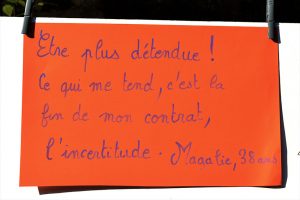 Etre plus détendue !
Ce qui me tend, c'est la
fin de mon contrat,
l'incertitude. Magalie, 38 ans